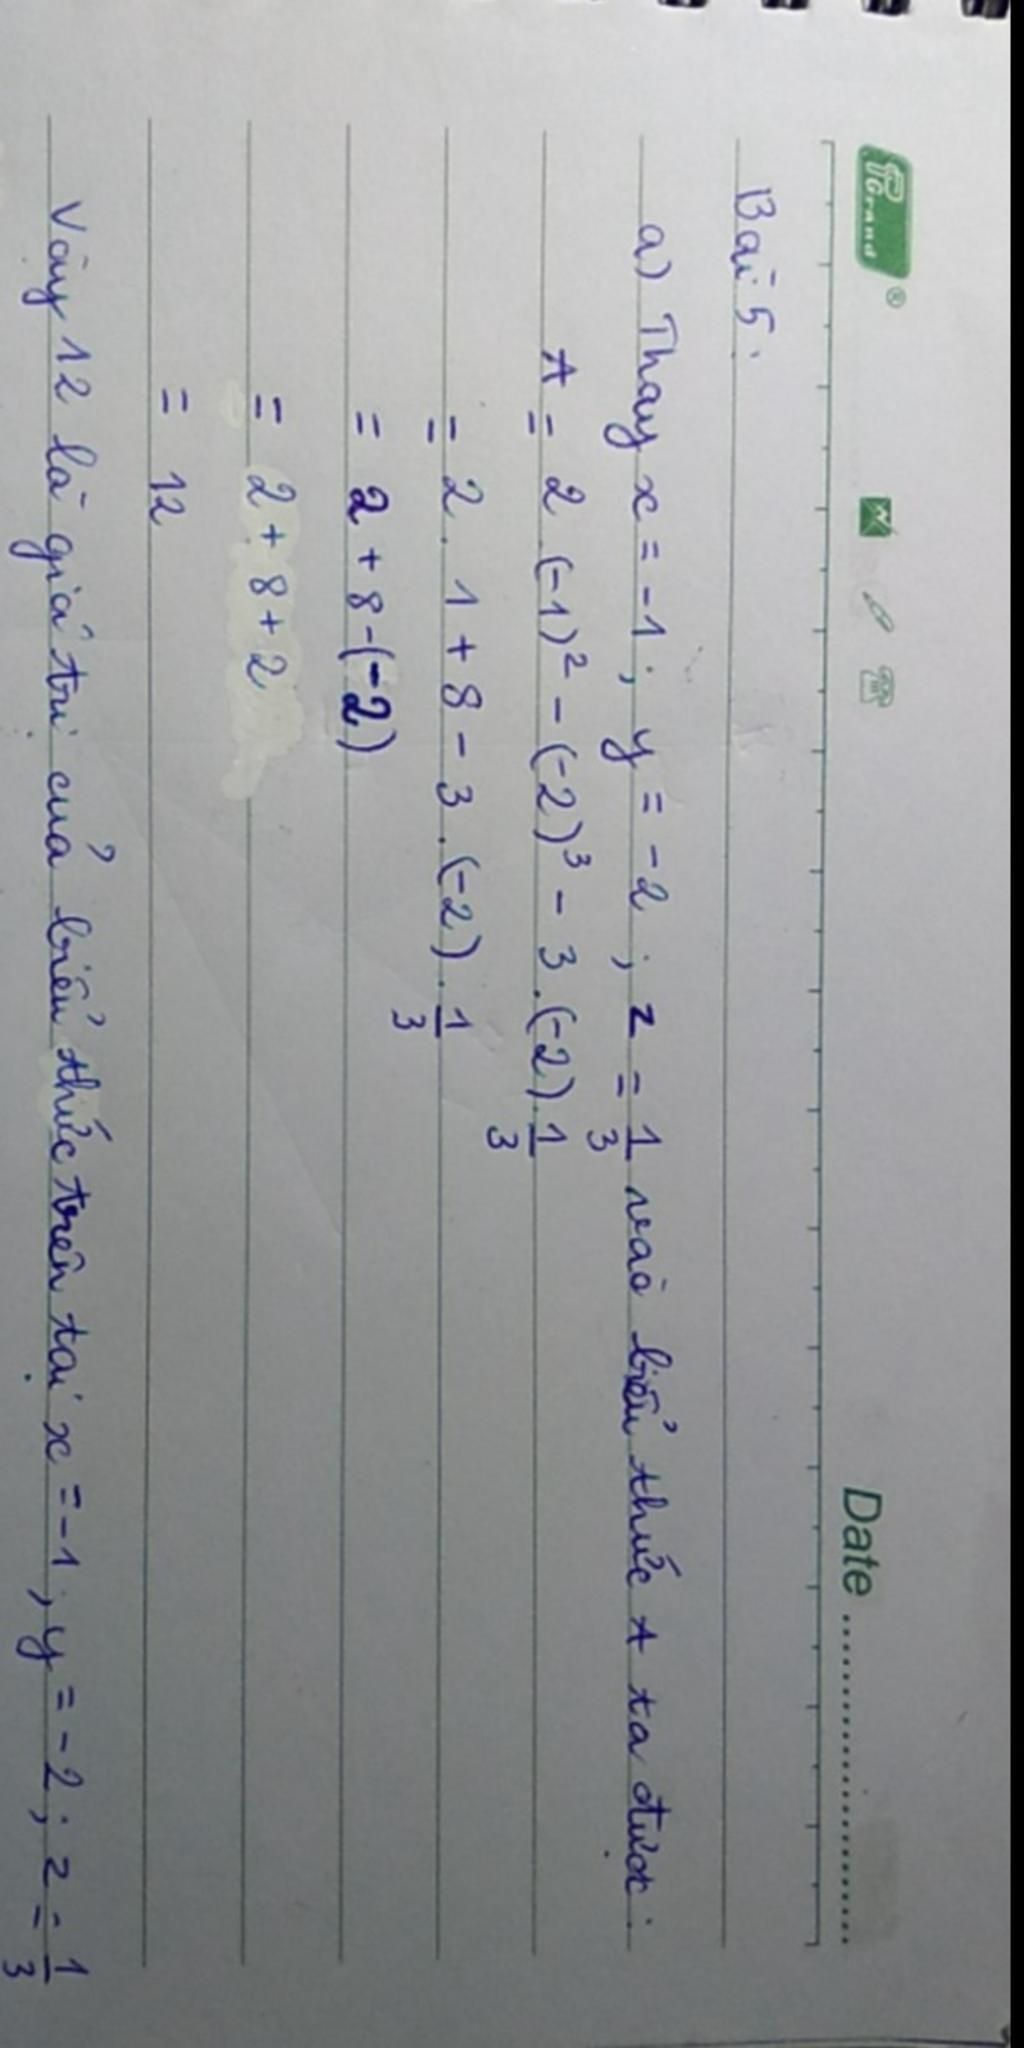 Grand ®
Date ....................
Bài 5:
a) Thay x = -1; y = -2; z = 1/3 vào biểu thức A ta được:
A = 2.(-1)² - (-2)³ - 3.(-2).1/3
= 2.1 + 8 - 3.(-2).1/3
= 2 + 8 - (-2)
= 2 + 8 + 2
= 12
Vậy 12 là giá trị của biểu thức trên tại x = -1; y = -2; z = 1/3